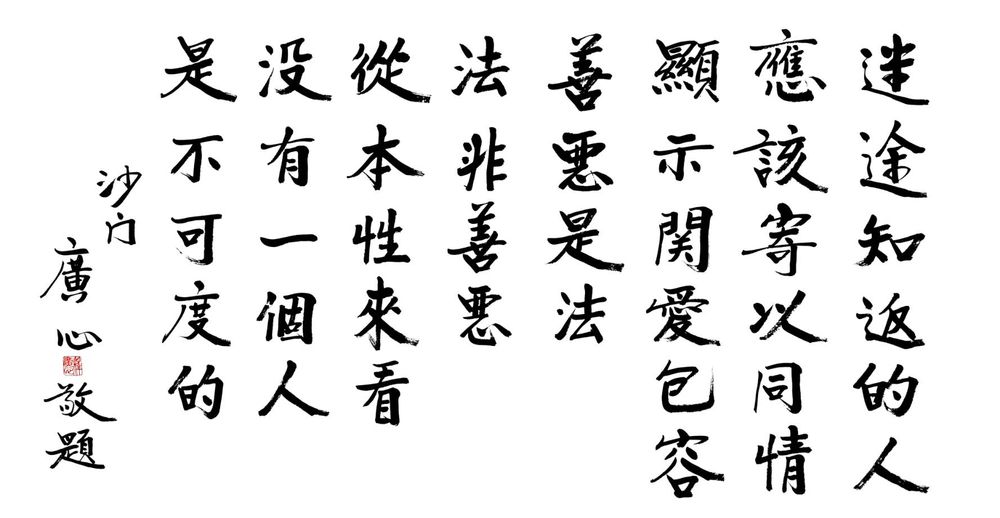 迷途知返的人
應該寄以同情
顯示関愛包容
善惡是法
法非善惡
從本性來看
没有一個人
是不可度的
沙门
廣心敬題